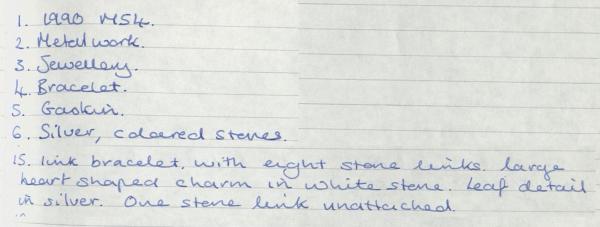 1. 1990 M54.
2. Metalwork.
3. Jewellery.
4. Bracelet.
5. Gaskin.
6. Silver, coloured stones.
15. link bracelet, with eight stone links. large
heart shaped charm in white stone. Leaf detail
in silver. One stone link unattached.